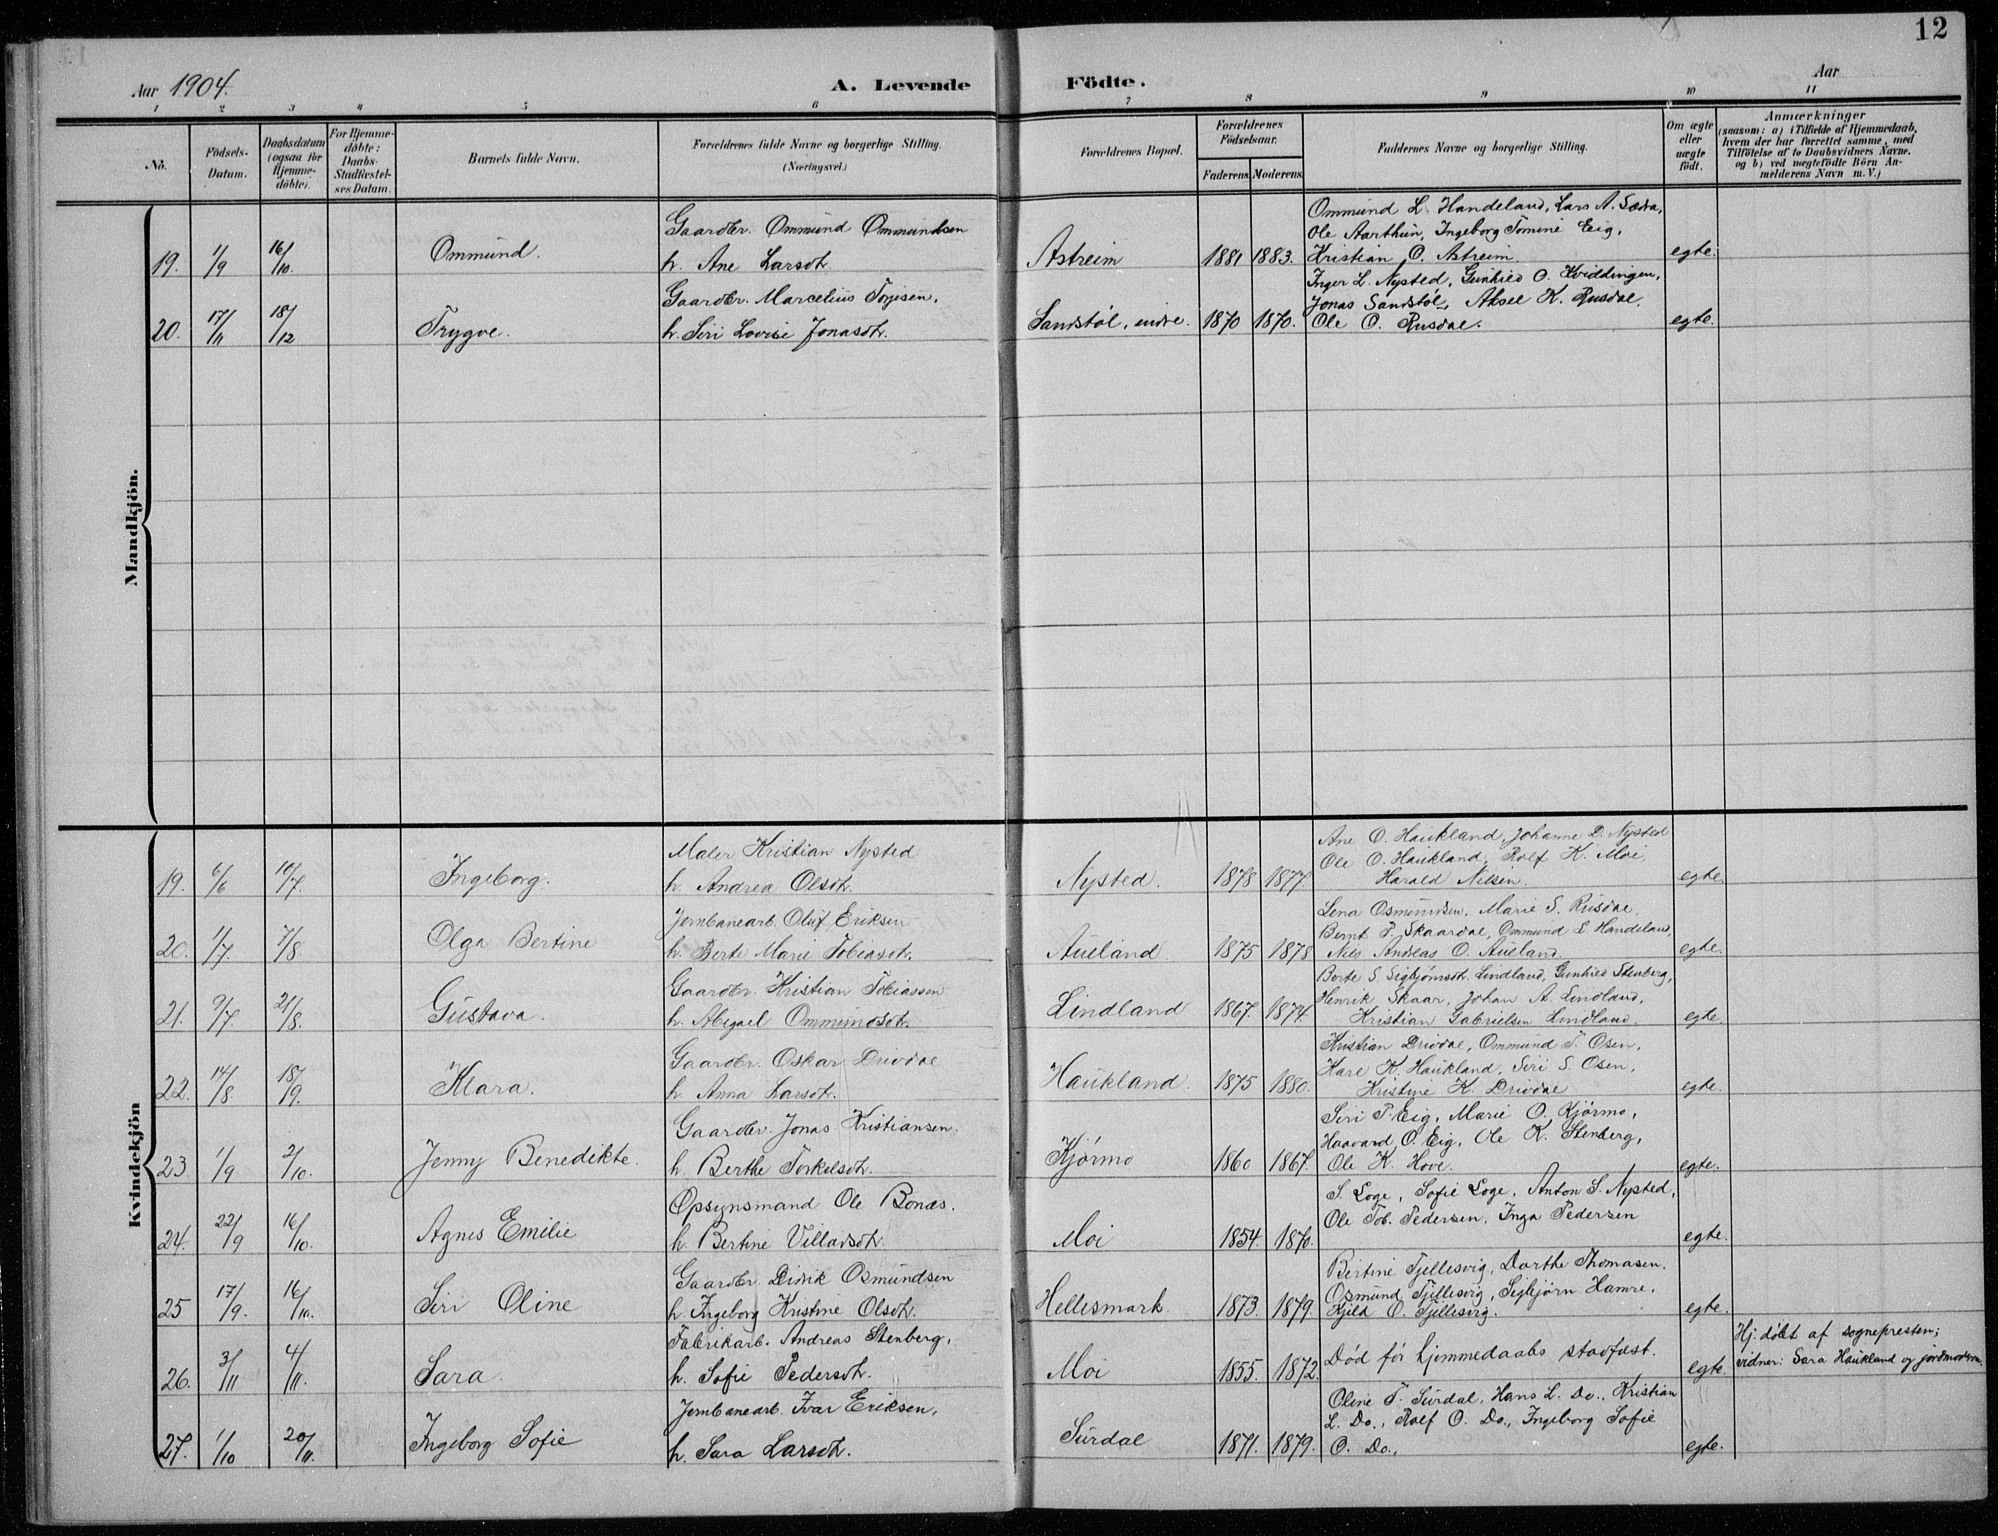 12
Aar 1904. A. Levende Födte. Aar
1 2 3 4 5 6 7 8 9 10 11
No. Födsels-Datum. Daabsdatum (ogsaa for Hjemme-döbte). For Hjemme-döbte: Daabs-Stadfæstel-ses Datum. Barnets fulde Navn. Forældrenes fulde Navne og borgerlige Stilling. (Næringsvei.) Forældrenes Bopæl. Forældrenes Födselsaar. Faderens. Moderens. Faddernes Navne og borgerlige Stilling. Om ægte eller uægte födt. Anmærkninger (saasom: a) i Tilfælde af Hjemmedaab, hvem der har forrettet samme, med Tilföielse af to Daabsvidners Navne. og b) ved uægtefödte Börn An-melderens Navn m. V.)
Mandkjön.
Gaardbr. Ommund Ommundsen Ommund L. Handeland, Lars A. Sædra,
Ole Aarthun, Ingeborg Tomine Eig,
19. 1/9 16/10 Ommund. h. Ane Larsdt. Astreim 1881 1883. Kristian O. Astreim. egte.
Gaardbr. Marcelius Torjesen, Inger L. Nysted, Gunhild O. Kviddingen,
Jonas Sandstöl, Aksel K. Rusdal,
20. 17/11 18/12 Trygve. h. Siri Lovise Jonasdt. Sandstöl, indre. 1870 1870. Ole O. Rusdal. egte.
Kvindekjön
Maler Kristian Nysted Ane O. Haukland, Johanne D. Nysted
Ole O. Haukland, Rolf K. Moi,
19. 6/6 10/7. Ingeborg. h. Andrea Olsdt. Nysted. 1878 1877. Harald Nilsen. egte.
Jernbanearb. Oluf Eriksen Lena Osmundsen, Marie S. Rusdal,
Bernt T. Skaardal, Ommund L. Handeland,
20. 1/7. 7/8 Olga Bertine h. Berte Marie Tobiasdt. Aueland 1875 1878 Nils Andreas O. Aueland. egte.
Gaardbr. Kristian Tobiassen Berte S. Sigbjörnsdt. Lindland, Gunhild Stenberg,
Henrik Skaar, Johan A. Lindland,
21. 9/7 21/8. Gustava. h. Abigael Ommundsdt. Lindland 1867. 1874. Kristian Gabrielsen Lindland. egte.
Gaardbr. Oskar Drivdal Kristian Drivdal, Ommund T. Osen,
Karl K. Haukland, Siri S. Osen,
22. 14/8. 18/9. Klara. h. Anna Larsdt. Haukland. 1875 1880. Kristine K. Drivdal egte.
Gaardbr. Jonas Kristiansen. Siri P. Eig, Marie O. Kjörmo,
Haavard O. Eig, Ole K. Stenberg,
23. 1/9 2/10. Jenny Benedikte. h. Berthe Torkelsdt. Kjörmo 1860 1867. Ole K. Hove. egte.
Opsynsmand Ole Bonas. S. Loge, Sofie Loge, Anton S. Nysted,
Ole Tob. Pedersen, Inga Pedersen
24. 22/9 16/10. Agnes Emilie h. Bertine Villadsdt. Moi 1854. 1870. egte.
Gaardbr. Didrik Osmundsen Bertine Tjellesvig, Dorthe Thomasen.
Osmund Tjellesvig, Sigbjörn Hamre,
25 17/9. 16/10. Siri Oline h. Ingeborg Kristine Olsdt. Hellesmark. 1873. 1879. Kjeld O. Tjellesvig. egte.
Fabrikarb. Andreas Stenberg, Hj. döbt af sognepresten;
26. 3/11 4/11. Sara. h. Sofie Pedersdt. Moi 1855. 1872. Död för hjemmedaabs stadfæst. egte. vidner: Sara Haukland og jordmoderen.
Jernbanearb. Ivar Eriksen, Oline T. Surdal, Hans L. Do., Kristian
L. Do., Rolf O. Do., Ingeborg Sofie
27. 1/10 20/11. Ingeborg Sofie h. Sara Larsdt. Surdal 1871. 1879. O. Do., egte.